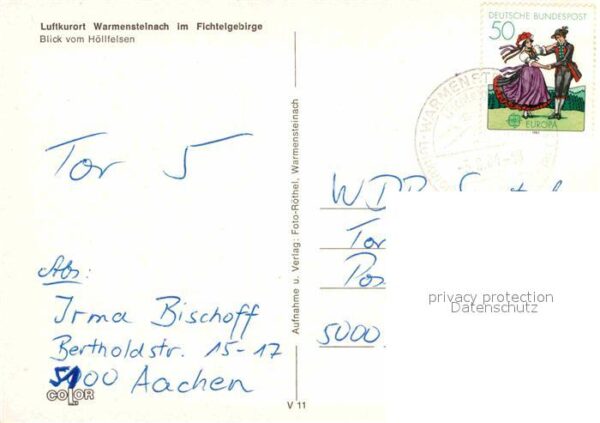 Luftkurort Warmensteinach im Fichtelgebirge
Blick vom Höllfelsen
Tor 5
Abs:
Irma Bischoff
Bertholdstr. 15-17
5100 Aachen
COLOR
Aufnahme u. Verlag: Foto-Röthel, Warmensteinach
V 11
DEUTSCHE BUNDESPOST
50
EUROPA
WARMENST
WDR
Tor
Pos
5000
privacy protection
Datenschutz